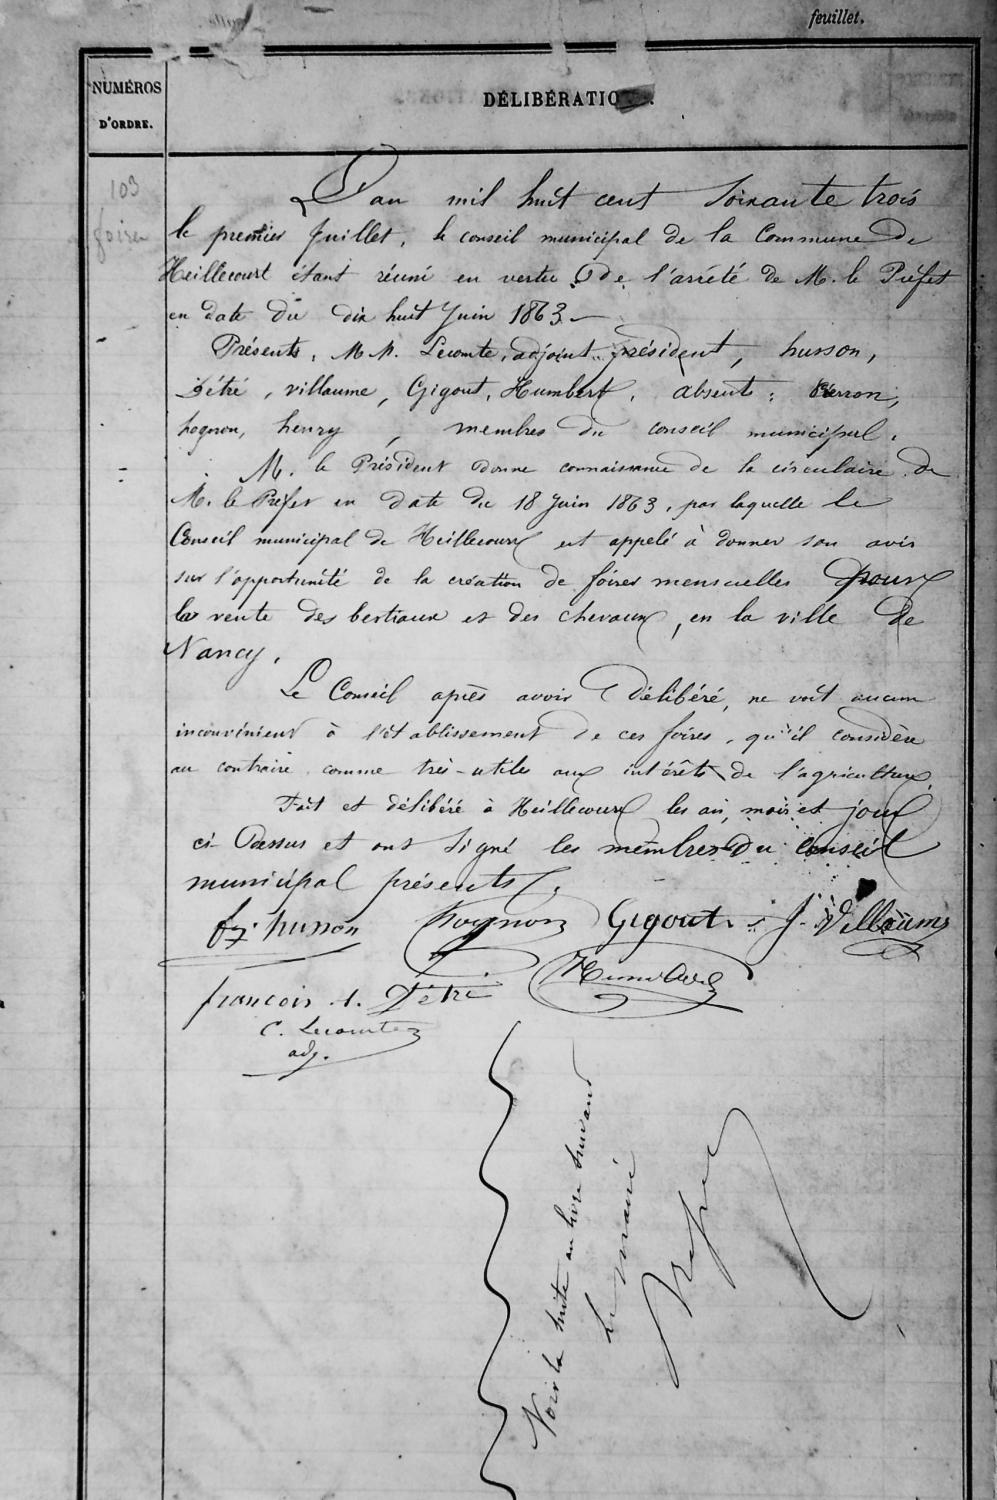 feuillet.
NUMÉROS
D'ORDRE.
DÉLIBÉRATIO
103
foires
L'an mil huit cent soixante trois
le premier Juillet, le conseil municipal de la Commune de
Heillecourt étant réuni en vertu de l'arrêté de M. le Préfet
en date du dix huit Juin 1863.—
Présents, M.M. Lecomte, adjoint président, husson,
Détré, villaume, Gigout, Humbert, absents : Pierron,
hognon, henry, membres du conseil municipal.
M. le Président donne connaissance de la circulaire de
M. le Préfet en date du 18 Juin 1863, par laquelle le
Conseil municipal de Heillecourt est appelé à donner son avis
sur l'opportunité de la création de foires mensuelles pour
la vente des bestiaux et des chevaux, en la ville de
Nancy.
Le Conseil après avoir délibéré, ne voit aucun
inconvénient à l'établissement de ces foires, qu'il considère
au contraire comme très-utiles aux intérêts de l'agriculture.
Fait et délibéré à Heillecourt les an, mois et jour
ci-dessus et ont signé les membres du conseil
municipal présents.
fx husson hognon Gigout J. Villaume
francois .t. Détré Humbert
C. Lecomte
adj.
Voir la suite au livre suivant
Le maire